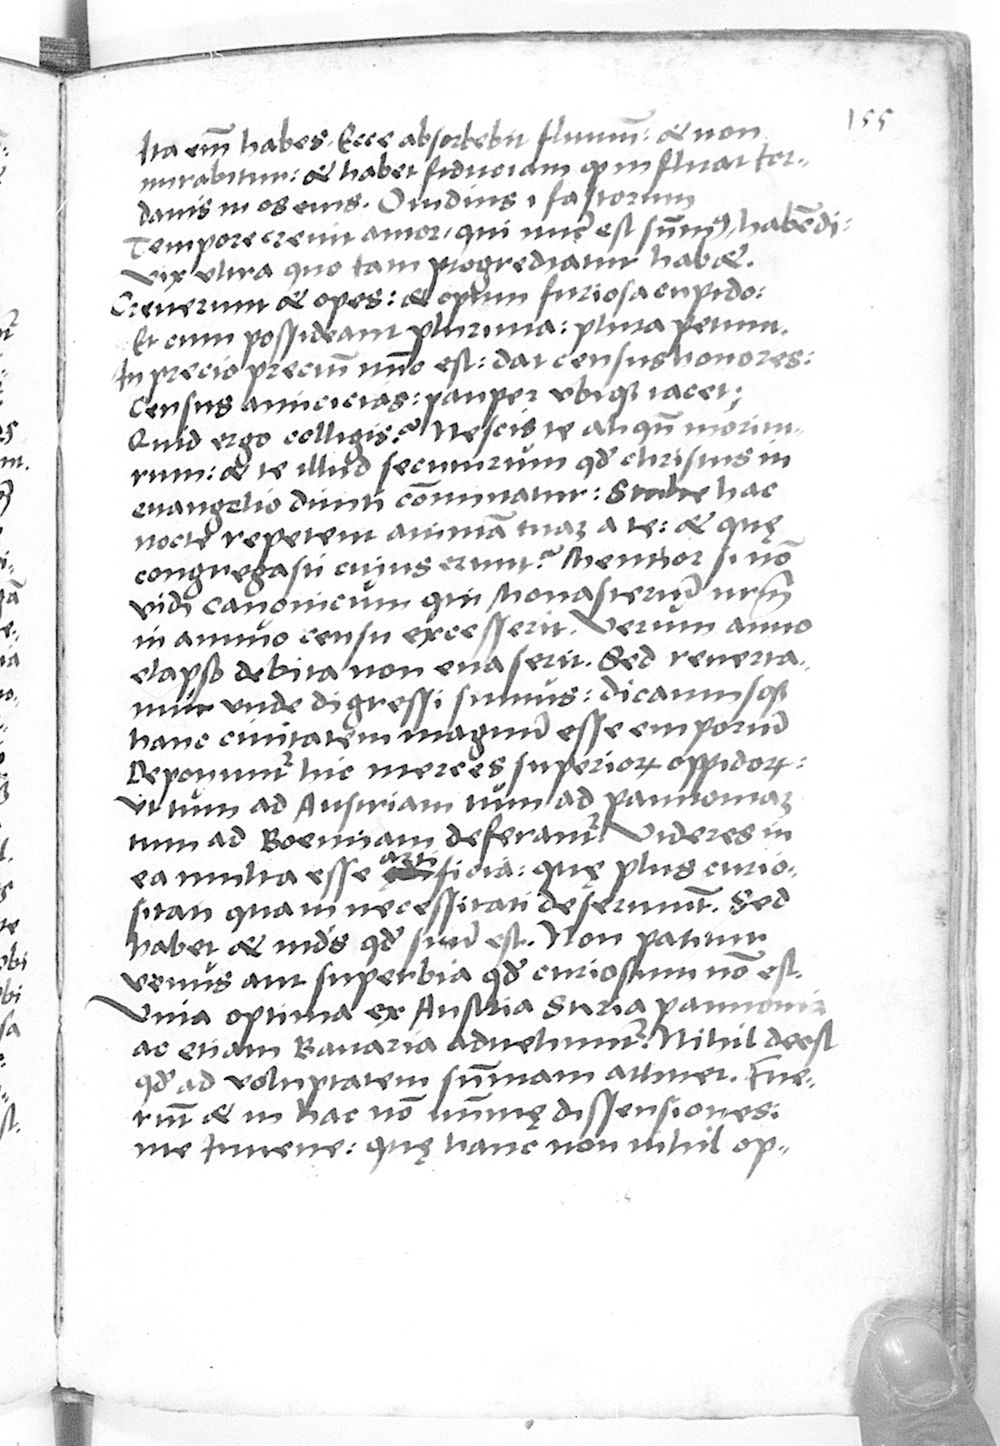 155
Ita em̄ habes. Ecce absorbebit fluuiū: & non
mirabitur: & habet fiduciam qp influat Ior-
danis in os eius. Ouidius i fastorum
Tempore creuit amor, qui nūc est sūmꝰ, habēdi:
Vix vltra quo iam progrediatur habet.
Creuerunt & opes: & opum furiosa cupido:
Et cum possideant plurima: plura petunt.
In precio preciū nūc est: dat census honores:
Census amicicias: pauper vbiqꝫ iacet;
Quid ergo colligis? Nescis te aliqn̄ moritu-
rum: & te illud secuturum qd̄ christus in
euangelio diuiti cōminatur: Stulte hac
nocte repetent animā tuaꝫ a te: & quę
congregasti cuius erunt? Mentior si nō
vidi canonicum qui Monasteriū nrm̄
in annuo censu excesserit. Verum anno
elapso debita non euaserit. Sed reuerta-
mur vnde digressi sumus: dicamusqꝫ
hanc ciuitatem magnū esse emporiū
Deponunt᷑ hic merces superioꝝ oppidoꝝ:
vt tum ad Austriam tum ad pannoniaꝫ
tum ad Boemiam deferant᷑. Videres in
ea multa esse artificia: quę plus curio-
sitati quam necessitati deseruiūt. Sed
habet & mūds qd̄ suū est. Non patitur
venus aut superbia qd̄ curiosum nō est.
Vina optima ex Austria Stiria pannonia
ac etiam Bauaria aduehunt᷑. Nihil deest
qd̄ ad voluptatem sūmam attinet. Fue-
rūt & in hac nō minimę dissensiones:
me Iuuene: quę hanc non nihil op-